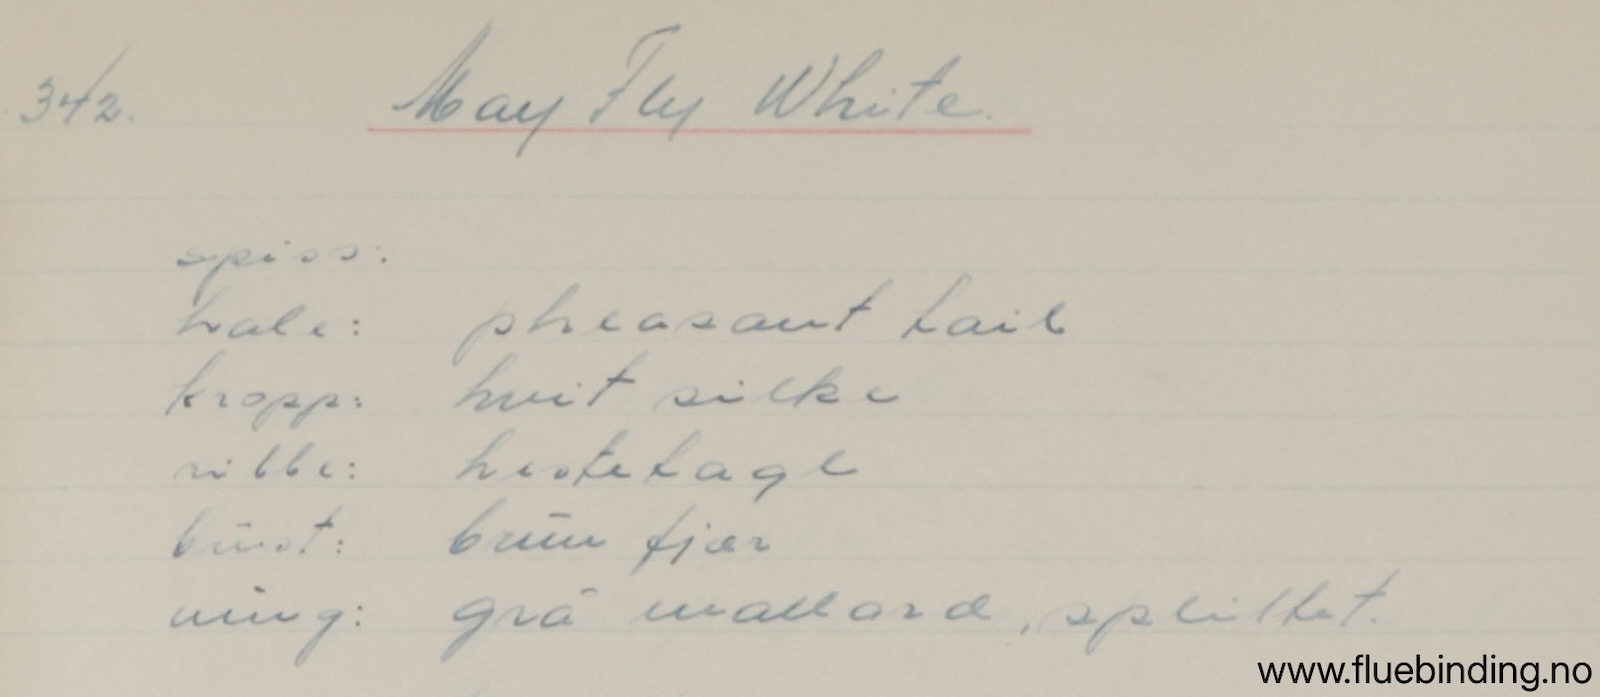 342. May Fly White.
spiss:
hale: pheasant tail
kropp: hvit silke
ribbe: hestetagl
büst: brün fjær
ving: grå mallard, splittet.
www.fluebinding.no